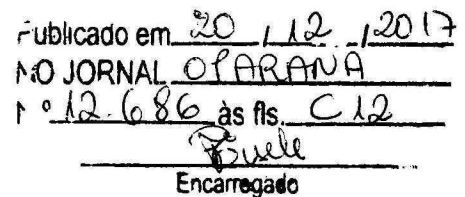 Publicado em 20 / 12 / 2017
NO JORNAL O PARANÁ
Nº 12.686 às fls. C12
Encarregado